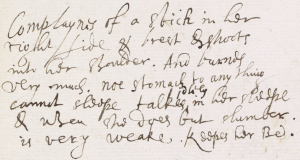 Complaynes of a stich in her
right side & brest & shoots
into her shoulder. And burnes
very much. noe stomach to any thing
cannot sleepe talkes idlely in her sleepe
& when she does but slumber.
is very weake. Keepes her Bed.